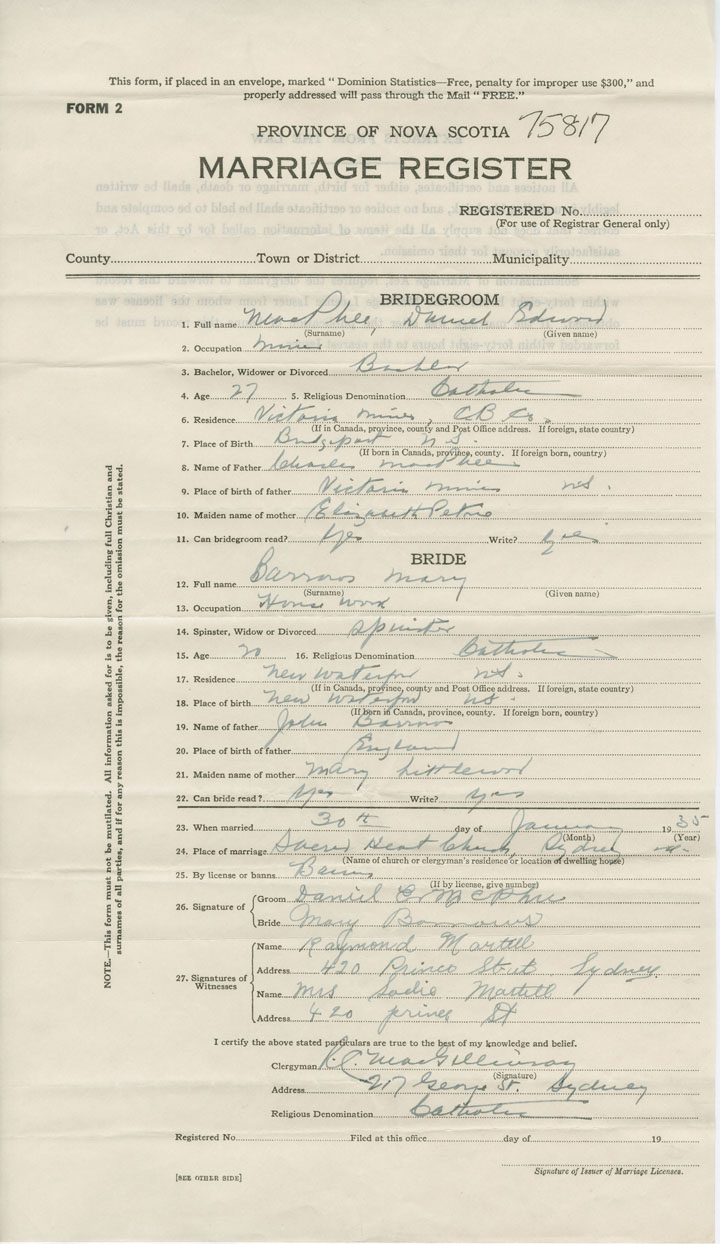 This form, if placed in an envelope, marked " Dominion Statistics—Free, penalty for improper use $300," and
properly addressed will pass through the Mail " FREE."
FORM 2
PROVINCE OF NOVA SCOTIA 75817
MARRIAGE REGISTER
REGISTERED No.
(For use of Registrar General only)
County Town or District Municipality
BRIDEGROOM
1. Full name MacPhee, Daniel Edward
(Surname) (Given name)
2. Occupation miner
3. Bachelor, Widower or Divorced Bachelor
4. Age 27 5. Religious Denomination Catholic
6. Residence Victoria mines, C.B. Co.
(If in Canada, province, county and Post Office address. If foreign, state country)
7. Place of Birth Bridgeport N S.
(If born in Canada, province, county. If foreign born, country)
8. Name of Father Charles MacPhee
9. Place of birth of father Victoria mines NS.
10. Maiden name of mother Elizabeth Petrie
11. Can bridegroom read? Yes Write? yes
BRIDE
12. Full name Barrows Mary
(Surname) (Given name)
13. Occupation House work
14. Spinster, Widow or Divorced spinster
15. Age 20 16. Religious Denomination Catholic
17. Residence New Waterford NS.
(If in Canada, province, county and Post Office address. If foreign, state country)
18. Place of birth New Waterford NS.
(If born in Canada, province, county. If foreign born, country)
19. Name of father John Barrows
20. Place of birth of father England
21. Maiden name of mother Mary Littlewood
22. Can bride read? Yes Write? yes
23. When married 30th day of January 1935
(Month) (Year)
24. Place of marriage Sacred Heart Church, Sydney
(Name of church or clergyman's residence or location of dwelling house)
25. By license or banns Banns
(If by license, give number)
26. Signature of
Groom Daniel E McPhee
Bride Mary Barrows
27. Signatures of Witnesses
Name Raymond Martell
Address 420 Prince Street Sydney
Name Mrs Sadie Martell
Address 420 prince St
I certify the above stated particulars are true to the best of my knowledge and belief.
Clergyman R.C. MacGillivray
(Signature)
Address 217 George St. Sydney
Religious Denomination Catholic
Registered No. Filed at this office day of 19
Signature of Issuer of Marriage Licenses.
[SEE OTHER SIDE]
NOTE.—This form must not be mutilated. All information asked for is to be given, including full Christian and
surnames of all parties, and if for any reason this is impossible, the reason for the omission must be stated.